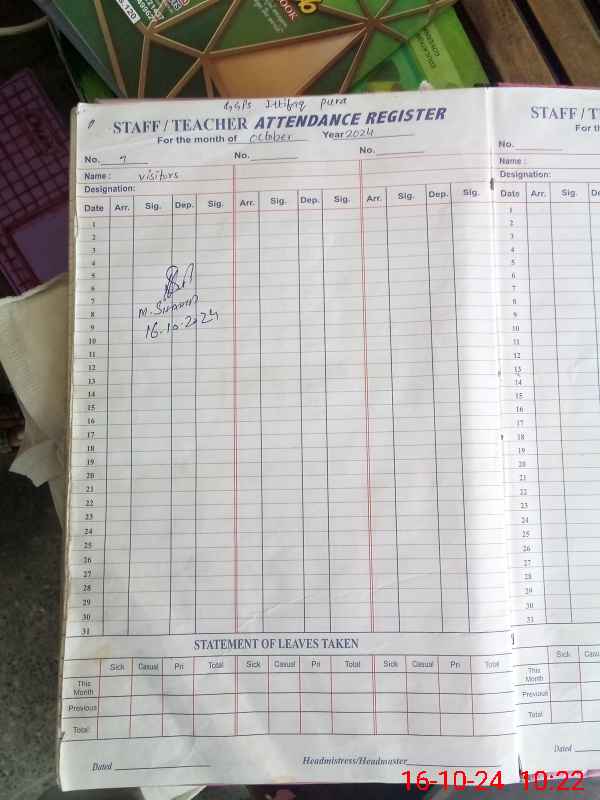 GGPS Ittifaq pura
STAFF / TEACHER ATTENDANCE REGISTER
For the month of October Year 2024
No. 7 No. No.
Name : Visitors
Designation:
Date Arr. Sig. Dep. Sig. Arr. Sig. Dep. Sig. Arr. Sig. Dep. Sig.
1
2
3
4
5
6
7
8
9
10
11
12
13
14
15
16
17
18
19
20
21
22
23
24
25
26
27
28
29
30
31
16-10-2024
STATEMENT OF LEAVES TAKEN
Sick Casual Pri Total Sick Casual Pri Total Sick Casual Pri Total
This Month
Previous
Total
Dated Headmistress/Headmaster
STAFF / T
For th
No.
Name :
Designation:
Date Arr. Sig. De
1
2
3
4
5
6
7
8
9
10
11
12
13
14
15
16
17
18
19
20
21
22
23
24
25
26
27
28
29
30
31
Sick Casu
This Month
Previous
Total
Dated
BOOK
16-10-24 10:22